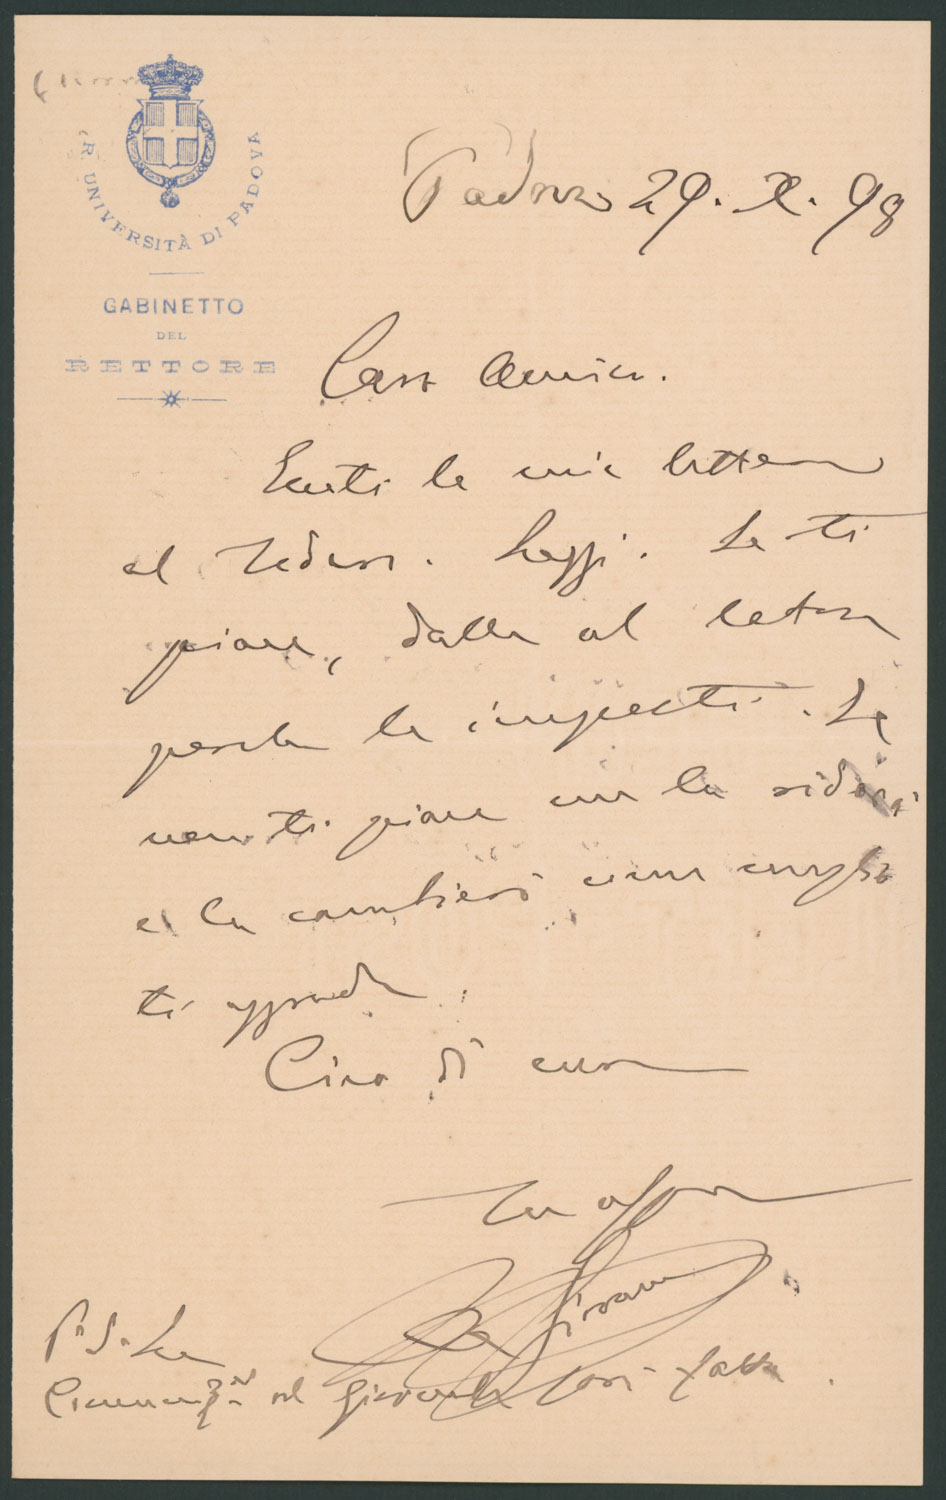 R. UNIVERSITÀ DI PADOVA
GABINETTO
DEL
RETTORE
Padova 29. X. 98
Caro Amico.
Senti la mia lettera
al Tedesco. Leggi. Se ti
piace, dalla al
perche la imposti. Se
non ti piace me la
e la cambierò come meglio
ti aggrada.
di cuore
Tuo aff
P. S. La
al sarà fatta.